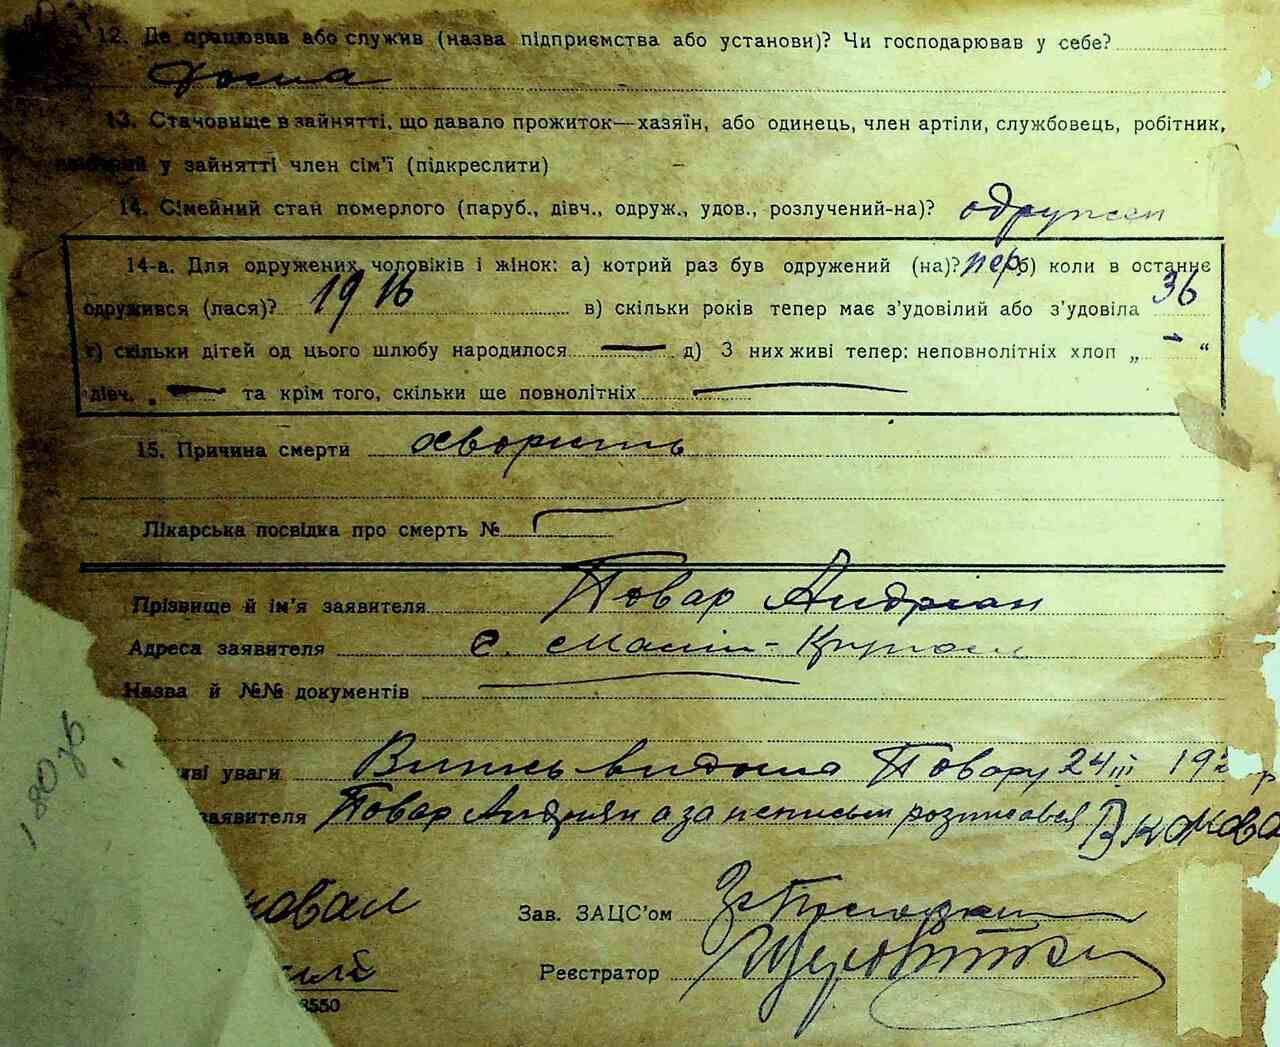 12. Де працював або служив (назва підприємства або установи)? Чи господарював у себе?
дома
13. Становище в зайнятті, що давало прожиток—хазяїн, або одинець, член артіли, службовець, робітник,
у зайнятті член сім'ї (підкреслити) –
14. Сімейний стан померлого (паруб., дівч., одруж., удов., розлучений-на)? одружен
14-а. Для одружених чоловіків і жінок: а) котрий раз був одружений (на)? пер. б) коли в останнє
одружився (лася)? 1916 в) скільки років тепер має з'удовілий або з'удовіла 36
г) скільки дітей од цього шлюбу народилося — д) З них живі тепер: неповнолітніх хлоп „ – “
дівч. „ — та крім того, скільки ще повнолітніх —
15. Причина смерти
Лікарська посвідка про смерть №
Прізвище й ім'я заявителя Товар Андріан
Адреса заявителя с.
Назва й №№ документів —
уваги Випись видана Товару 24/III 19
заявителя Товар Андріян а за неписьм розписався
Зав. ЗАЦС'ом
Реєстратор
3550
180 зв